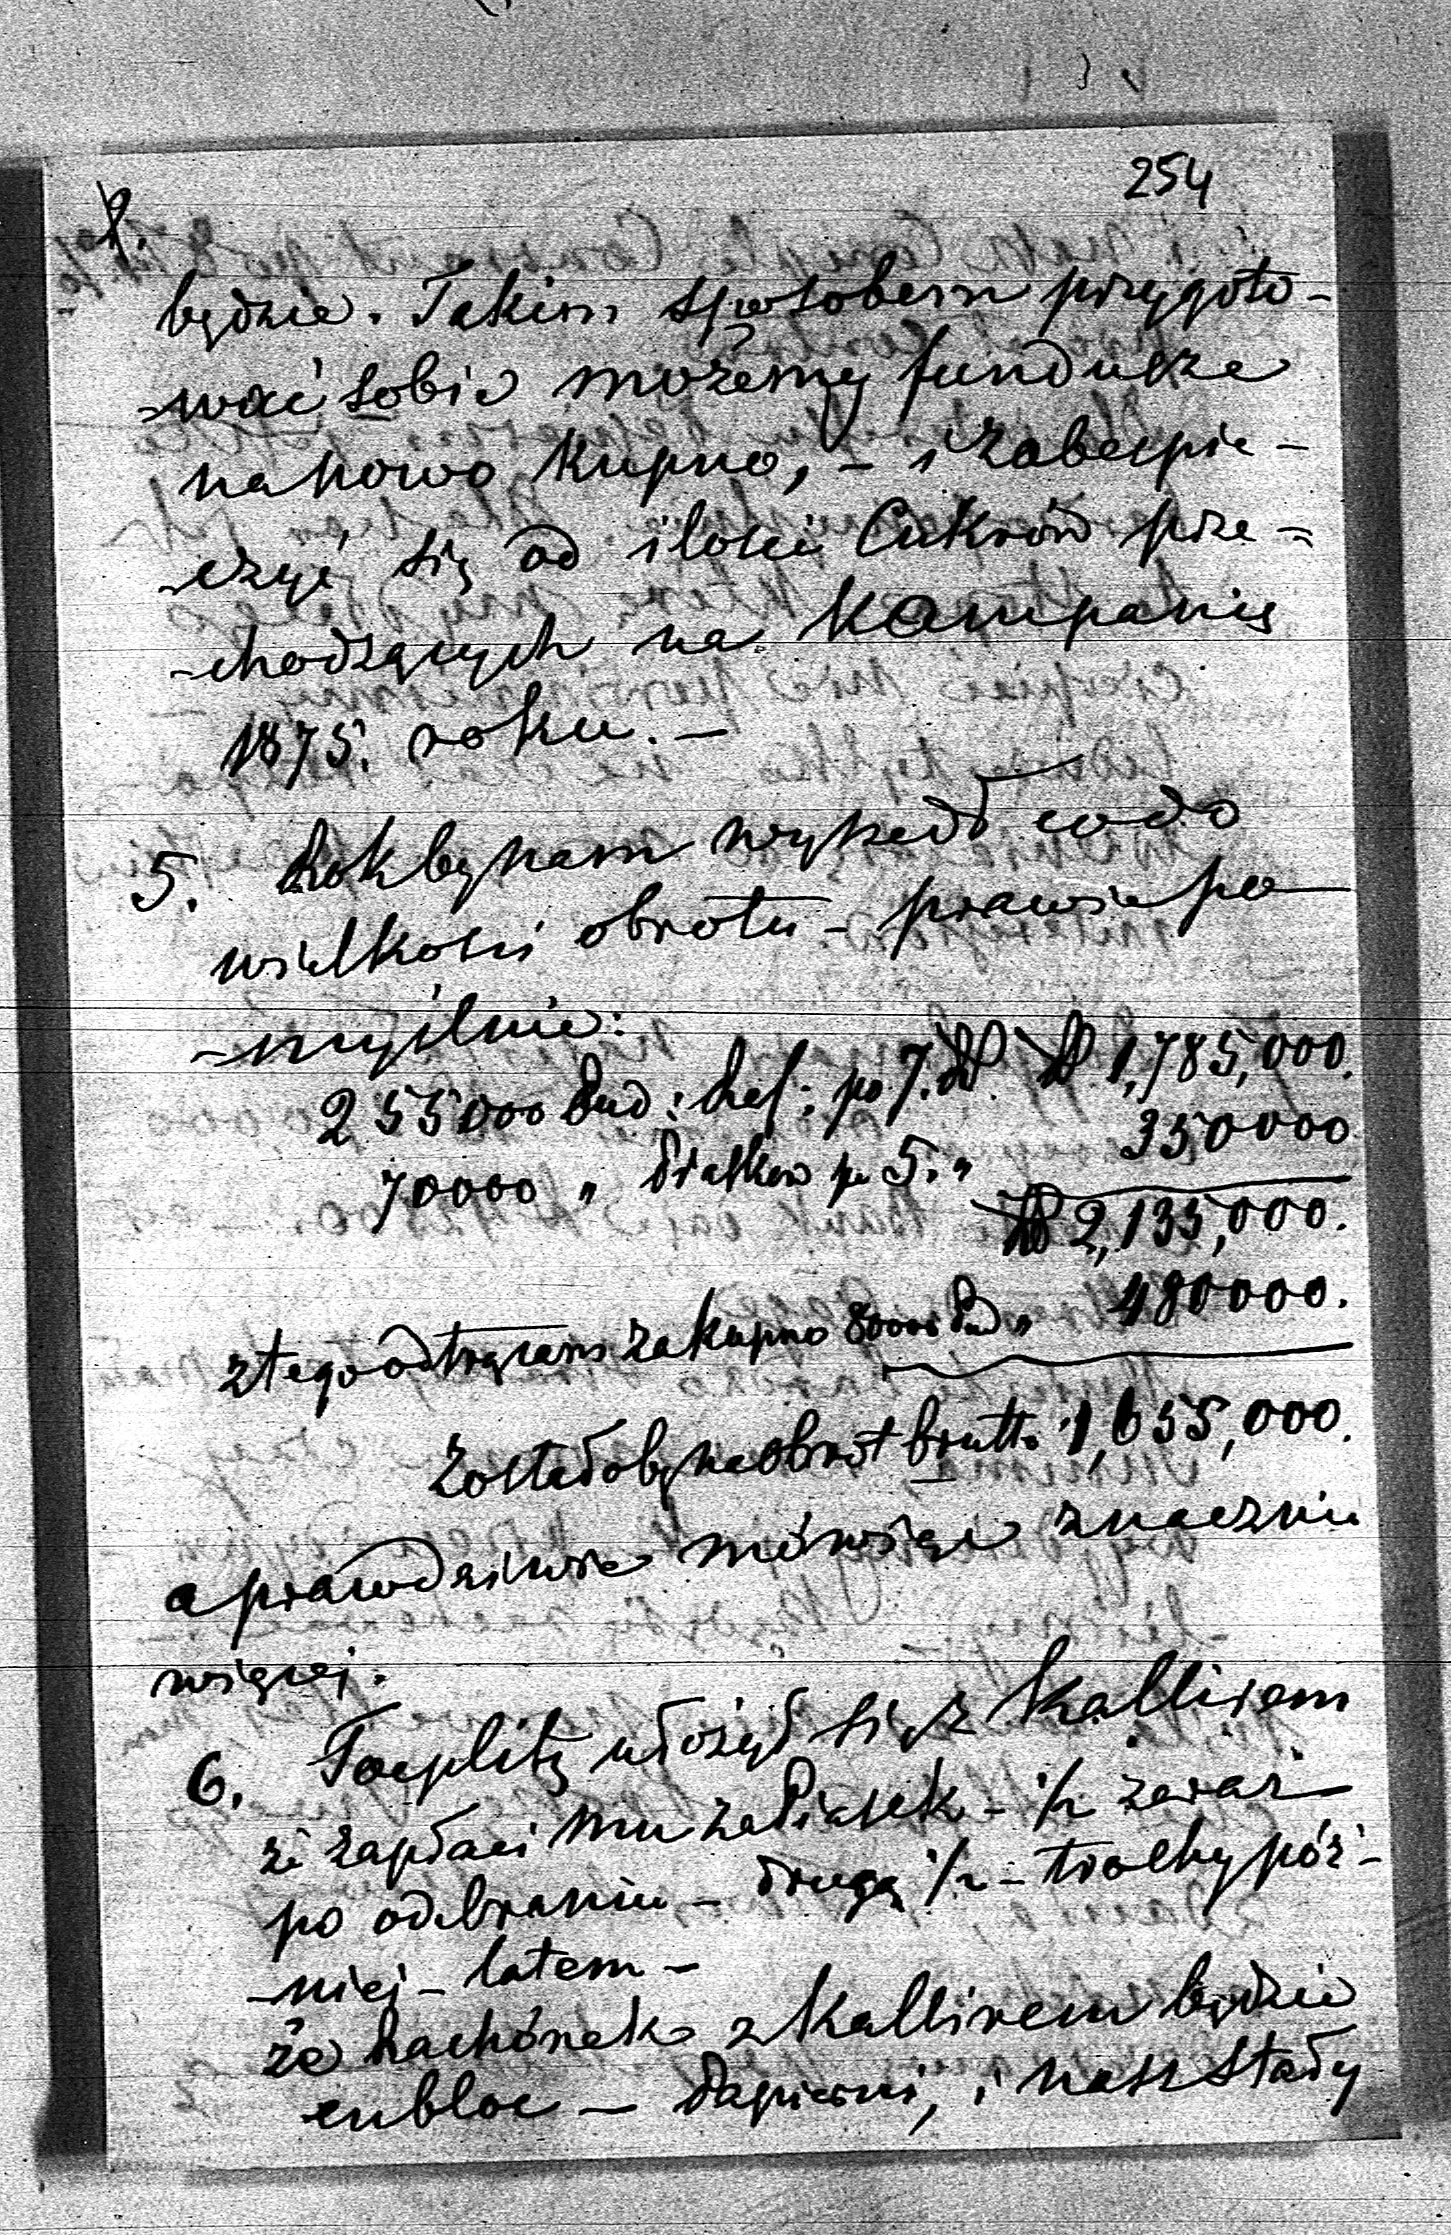 254
będzie. Takim sposobem przygoto-
-wać sobie możemy fundusze
na nowo kupno, - i zabezpie-
-czyć się od ilości Cukrów prze-
-chodzących na Kampanię
1875. roku. -
5. Rok by nam wyszedł co do
wielkości obrotu - prawie po-
-myślnie:
255000 Pud: Raf: po 7. R 1,785,000.
70000 " Piasków po 5. " 350000
R 2,135,000.
z tego odtrącam zakupno 80000 Pud " 480000.
Zostałoby na obrót brutto 1,655,000.
a prawdziwie mówiąc znacznie
więcej.
6. Toeplitz ułożył się z Kallirem
że zapłaci mu za Piasek - 1/2 zaraz
po odebraniu - drugą 1/2 - trochy póź-
-niej - latem -
że Rachónek z Kallirem będzie
enbloc - Papierni, i nasz Stały